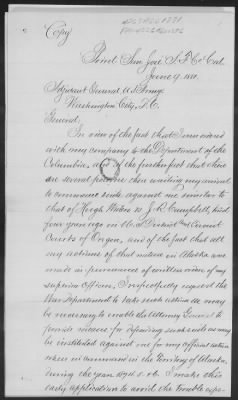 Copy
Point San José S.F. Co Cal
June 9. 1880.
Adjutant General U.S. Army.
Washington City, D.C.
General:
In view of the fact that I am ordered
with my company to the Department of the
Columbia, and of the further fact that there
are several persons there waiting my arrival
to commence suits against me similar to
that of Hugh Waters vs J.B. Campbell, tried
four years ago in U.S. District and Circuit
Courts of Oregon, and of the fact that all
my actions of that nature in Alaska were
made in pursuance of written orders of my
superior Officers, I respectfully request the
War Department to take such action as may
be necessary to enable the Attorney General to
provide means for defending such suits as may
be instituted against me for my official action
when in command in the Territory of Alaska,
during the year 1874. I make this
early application to avoid the trouble expe-